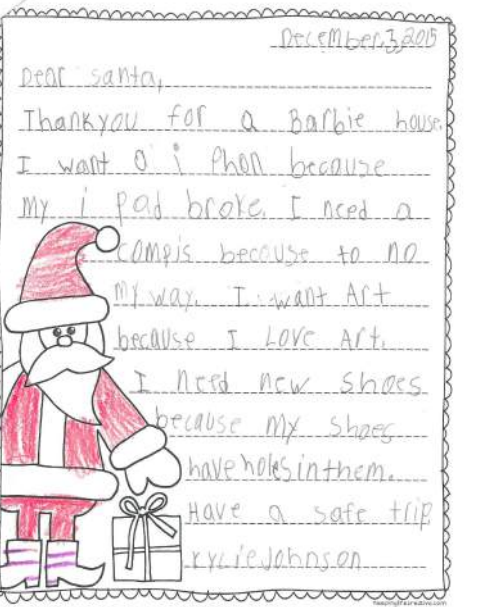 December,3,2015
Dear santa,
Thankyou for a Barbie house.
I want a i Phon because
my i pad broke. I need a
compis because to no
my way. I want Art
because I Love Art.
I need new shoes
because my shoes
have holes in them.
Have a safe trip
kylie Johnson
keepinglifecreative.com